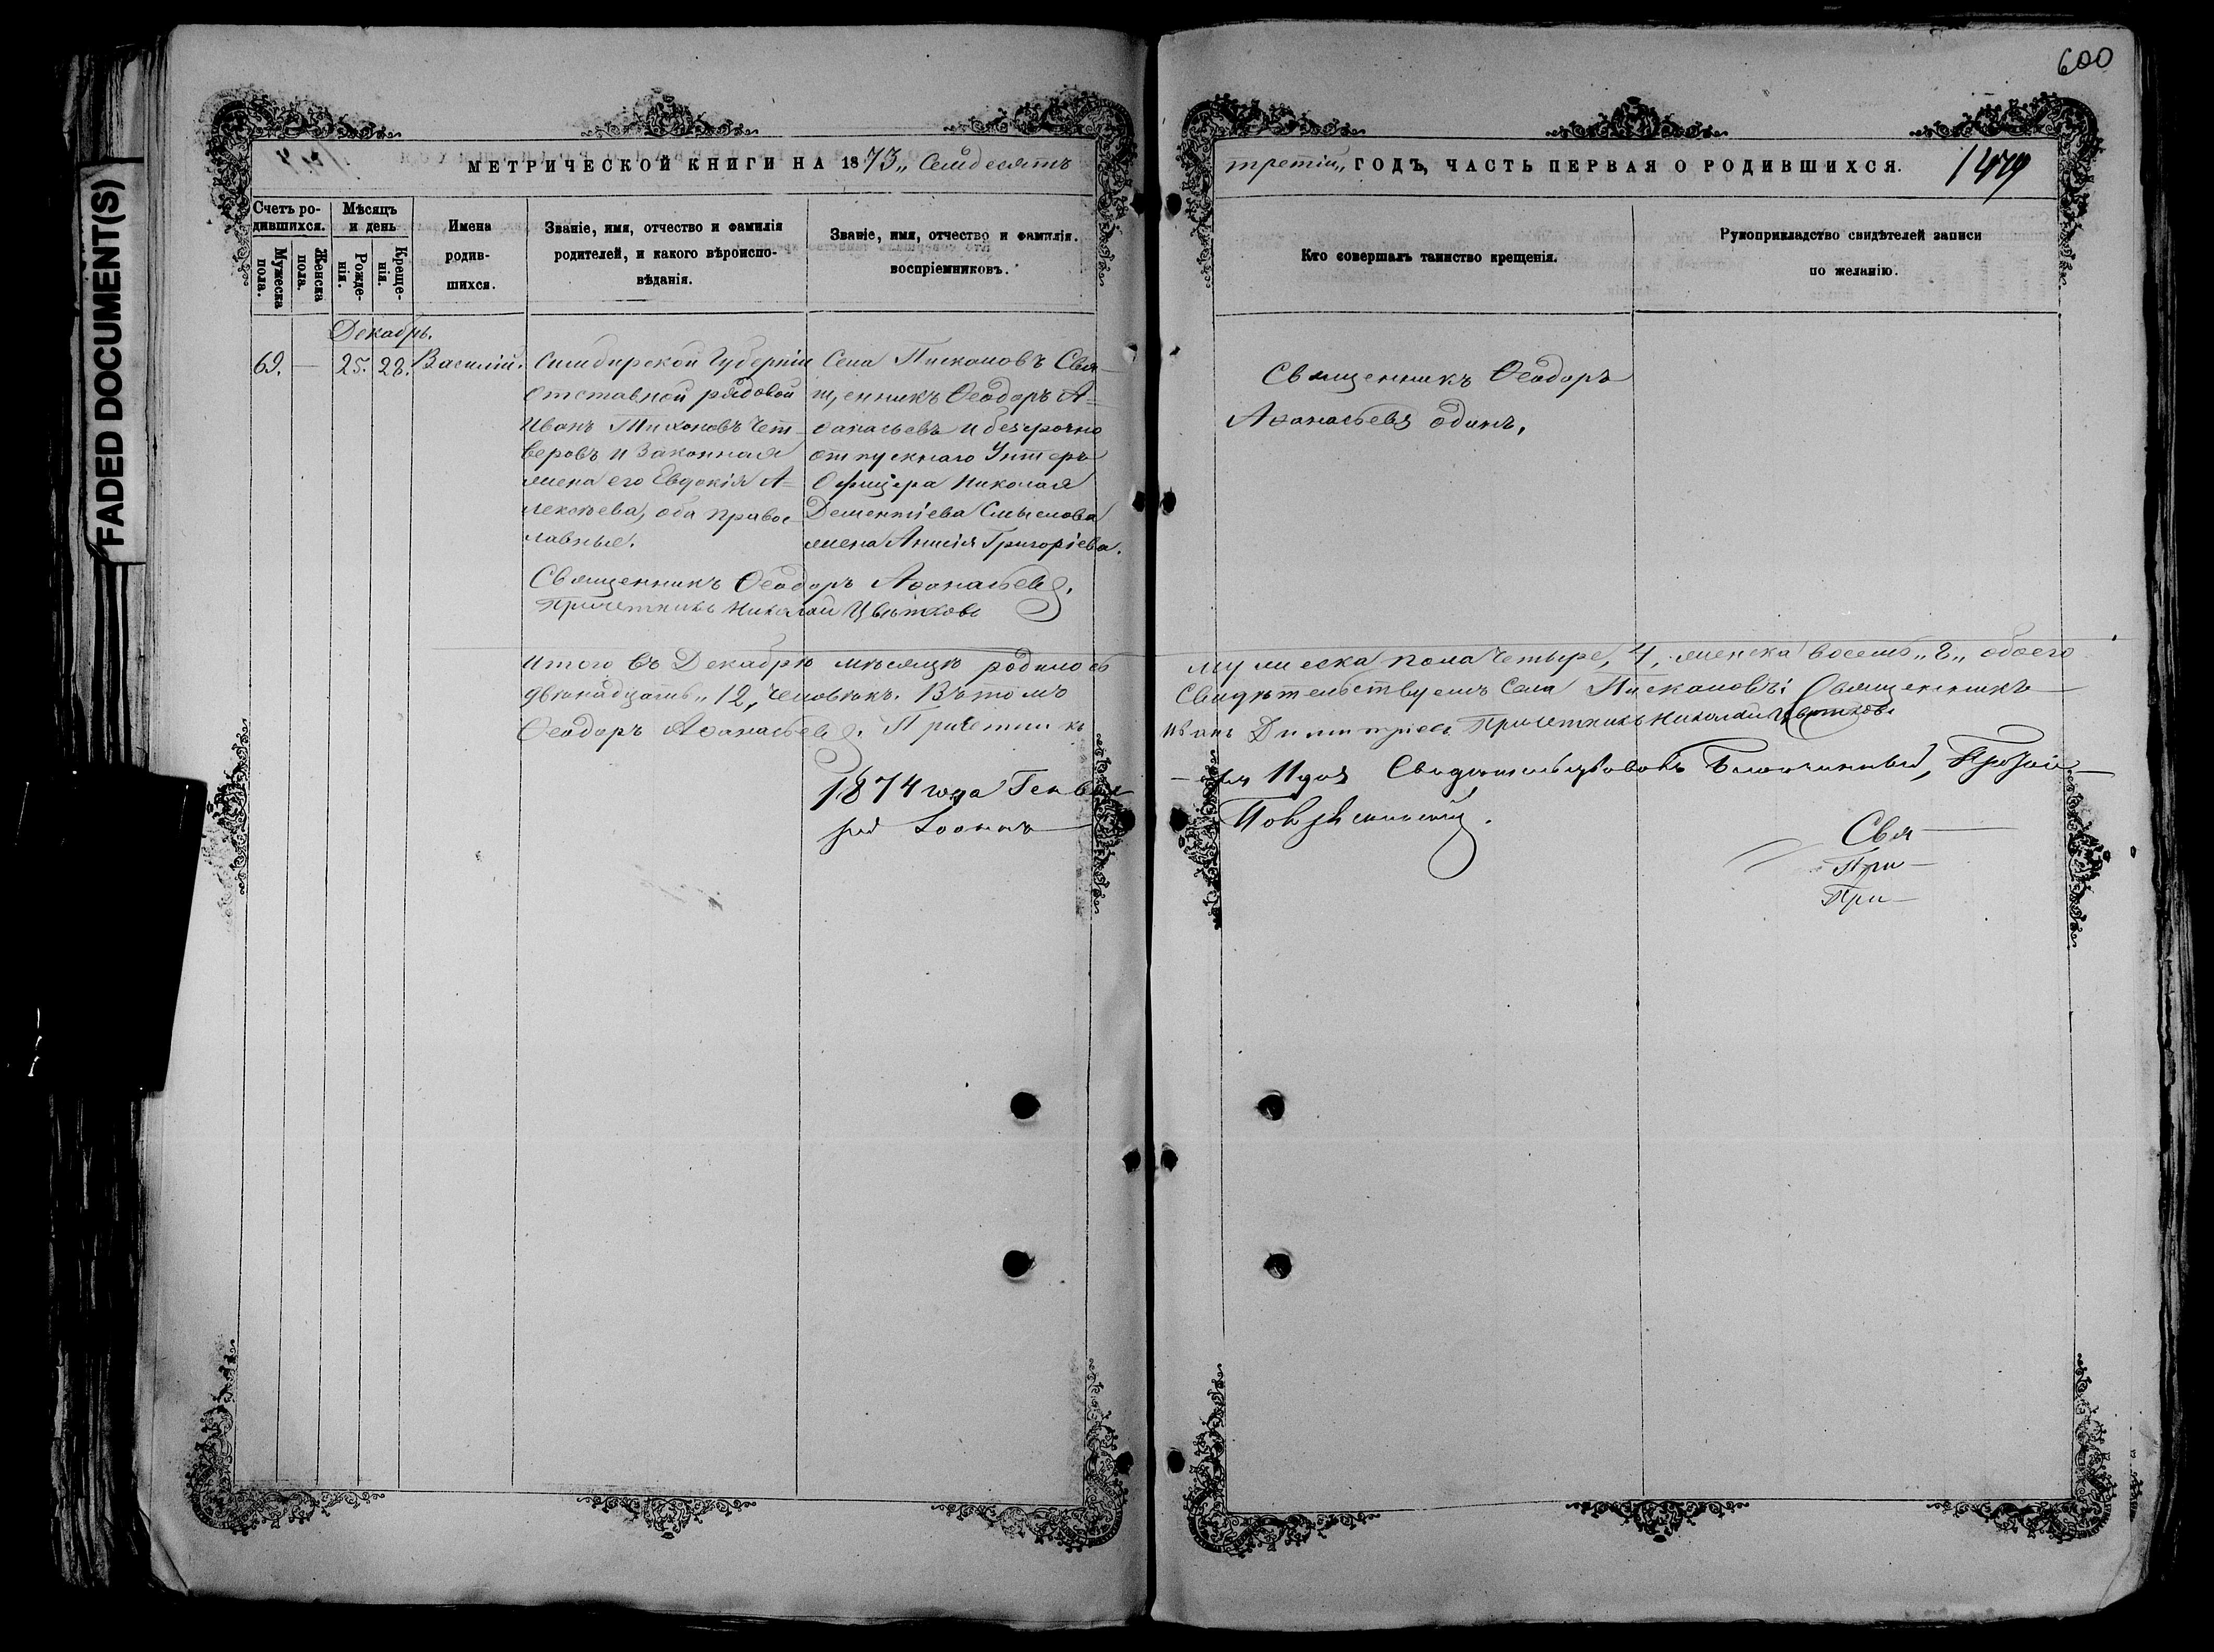 600
FADED DOCUMENT(S)
МЕТРИЧЕСКОЙ КНИГИ НА 1873,, Семдесятъ
третій,, ГОДЪ, ЧАСТЬ ПЕРВАЯ О РОДИВШИХСЯ.
Счетъ ро-
дившихся.
Мужеска
пола.
Женска
пола.
Мѣсяцъ
и день
Рожде-
нія.
Креще-
нія.
Имена
родив-
шихся.
Званіе, имя, отчество и фамилія
родителей, и какого вѣроиспо-
вѣданія.
Званіе, имя, отчество и фамилія.
воспріемниковъ.
Кто совершалъ таинство крещенія.
Рукоприкладство свидѣтелей записи
по желанію.
Декабрь.
69. — 25. 28. Василій.
Симбирской Губерніи
отставной рядовой
Иванъ Тихоновъ Чет-
веровъ и законная
жена его Евдокія А=
лексѣева, оба правос-
лавные.
Села Пискаловъ Свя-
щенникъ Ѳеодоръ А=
ѳанасьевъ и безсрочно
отпускнаго Унтеръ
Офицера Николая
Дементіева Смыслова
жена Анисія Григоріева.
Священникъ Ѳеодоръ
Аѳанасьевъ одинъ,
Священникъ Ѳеодоръ Аѳанасьевъ.
Причетникъ Николай Цвѣтковъ
Итого въ Декабрѣ мѣсяцѣ родилось
мужеска пола четыре, 4, женска восемь,, 8,, обоего
двѣнадцать,, 12,, человѣкъ. Въ томъ
свидѣтельствуемъ села Пискаловъ: Священникъ
Ѳеодоръ Аѳанасьевъ. Причетникъ
Иванъ Димитріевъ Причетникъ Николай Цвѣтковъ
1874 года Генва
ря 11 дня Свидѣтельствовалъ Благочинный,
рей Іоаннъ
Свя
При
При